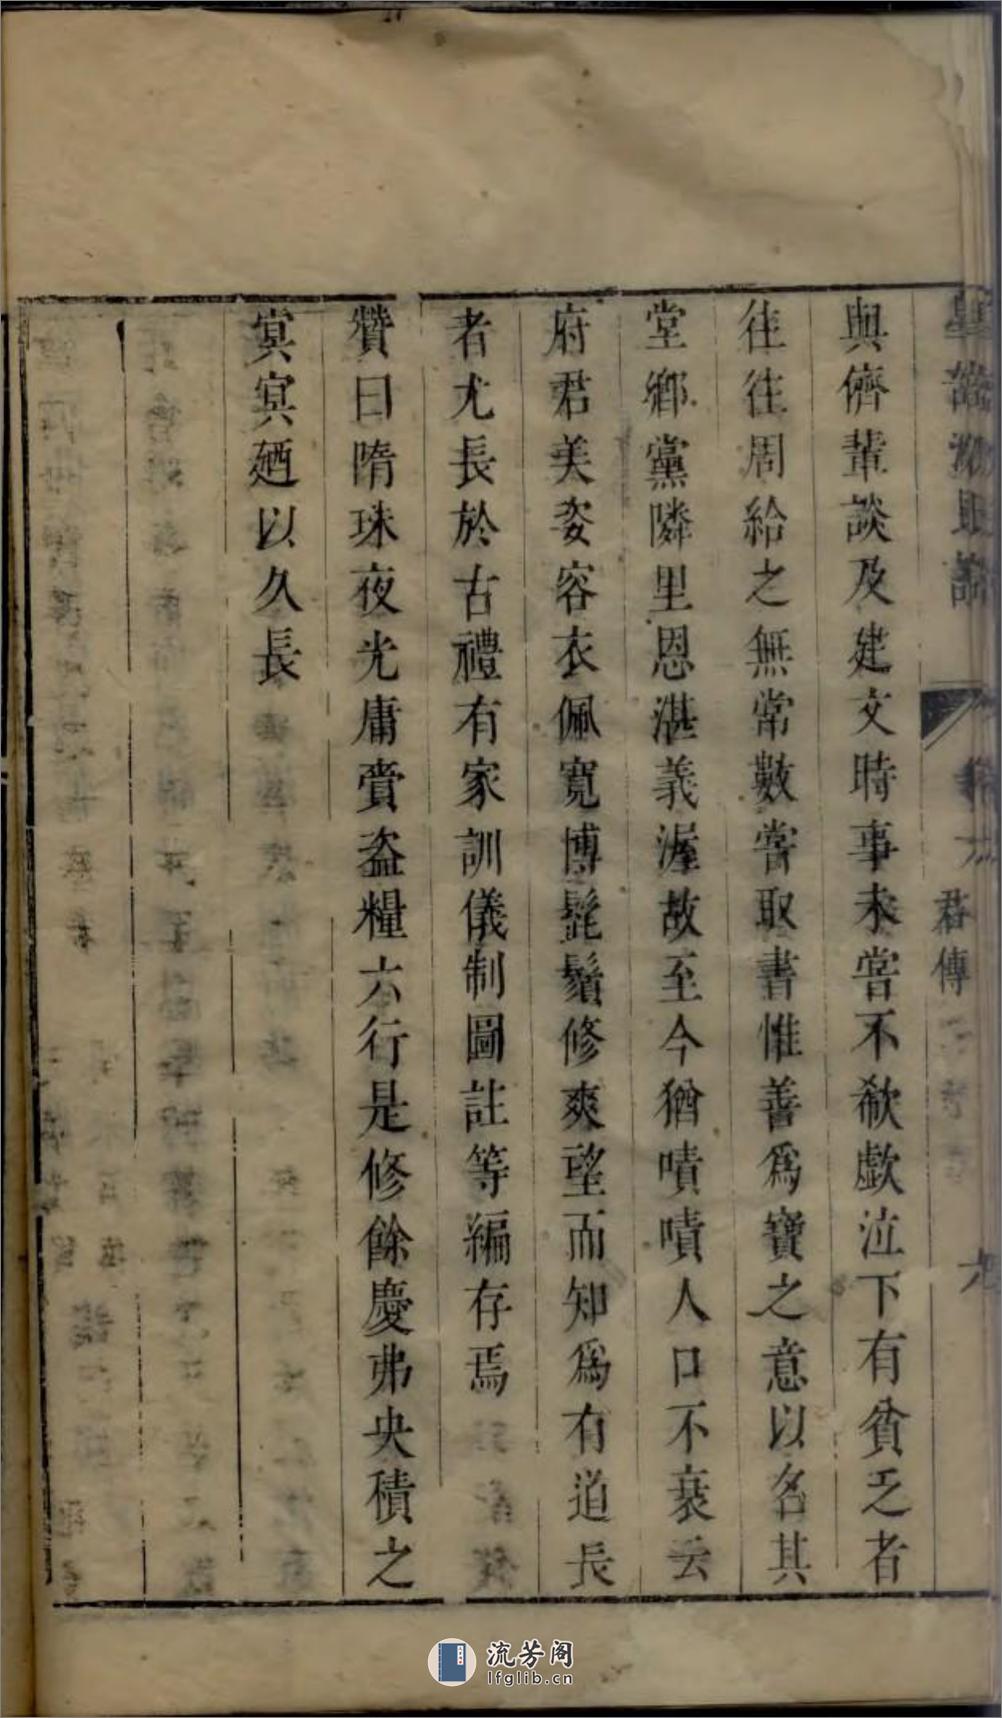 與儕輩談及建文時事未嘗不欷歔泣下有貧乏者
往往周給之無常數嘗取書惟善為寶之意以名其
堂鄉黨隣里恩湛義渥故至今猶嘖嘖人口不衰云
府君美姿容衣佩寬博髭鬚修爽望而知為有道長
者尤長於古禮有家訓儀制圖註等編存焉
贊曰隋珠夜光庸賫盗糧六行是修餘慶弗央積之
冥冥廼以久長
君傳
九
流芳阁
lfglib.cn